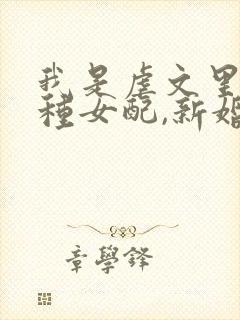 我是虐文里
種女配,新婚
章學鋒